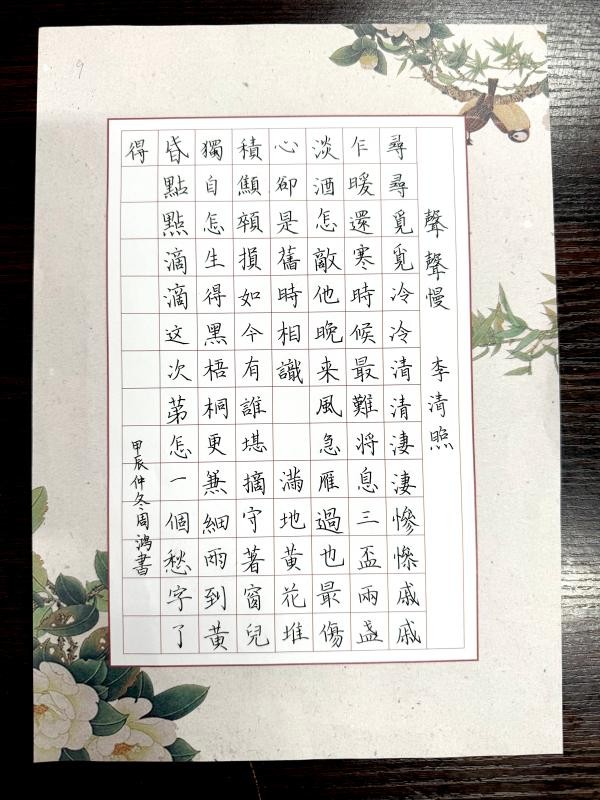 聲聲慢 李清照
尋尋覓覓冷冷清清淒淒慘慘戚戚
乍暖還寒時候最難將息三盃兩盞
淡酒怎敵他晚来風急雁過也最傷
心卻是舊時相識 滿地黃花堆
積顦顇損如今有誰堪摘守著窗兒
獨自怎生得黑梧桐更兼細雨到黃
昏點點滴滴这次第怎一個愁字了
得
甲辰仲冬周鴻書
9